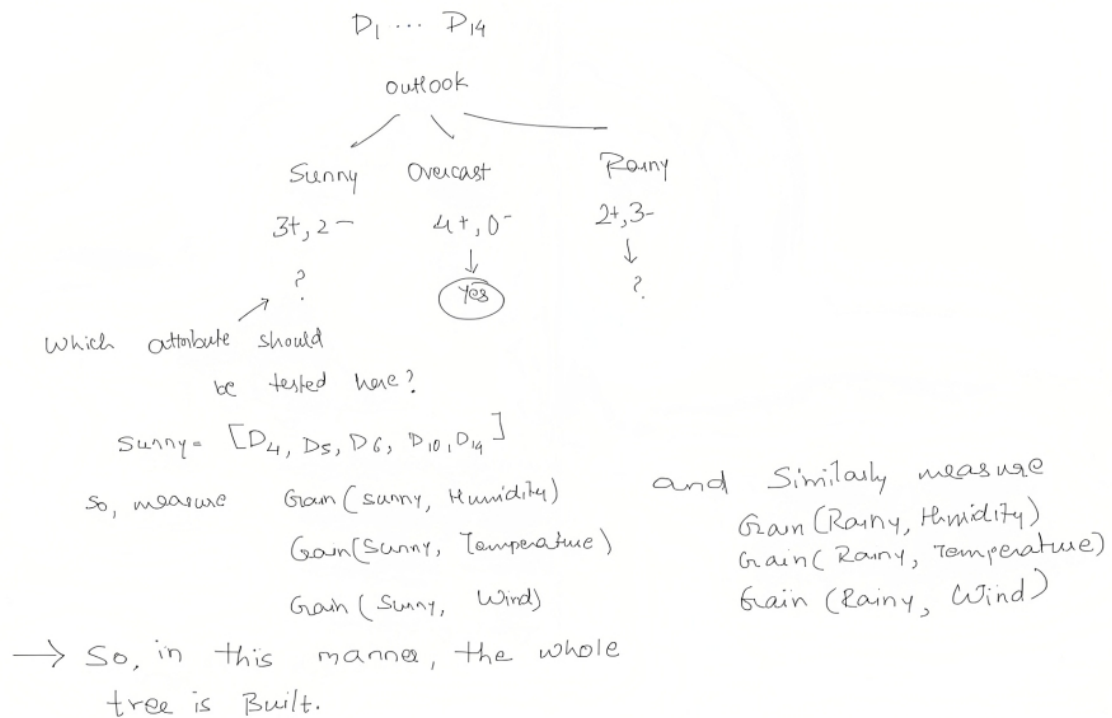 D1 ... D14
outlook
Sunny Overcast Rainy
3+, 2- 4+, 0- 2+, 3-
? Yes ?
Which attribute should
be tested here?
Sunny = [D4, D5, D6, D10, D14]
So, measure Gain (Sunny, Humidity)
Gain (Sunny, Temperature)
Gain (Sunny, Wind)
and Similarly measure
Gain (Rainy, Humidity)
Gain (Rainy, Temperature)
Gain (Rainy, Wind)
→ So, in this manner, the whole
tree is Built.